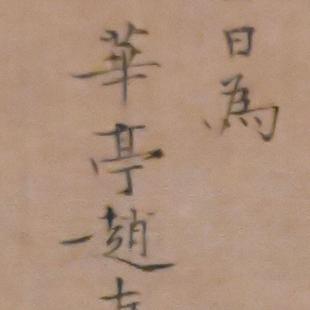 日為
華亭趙